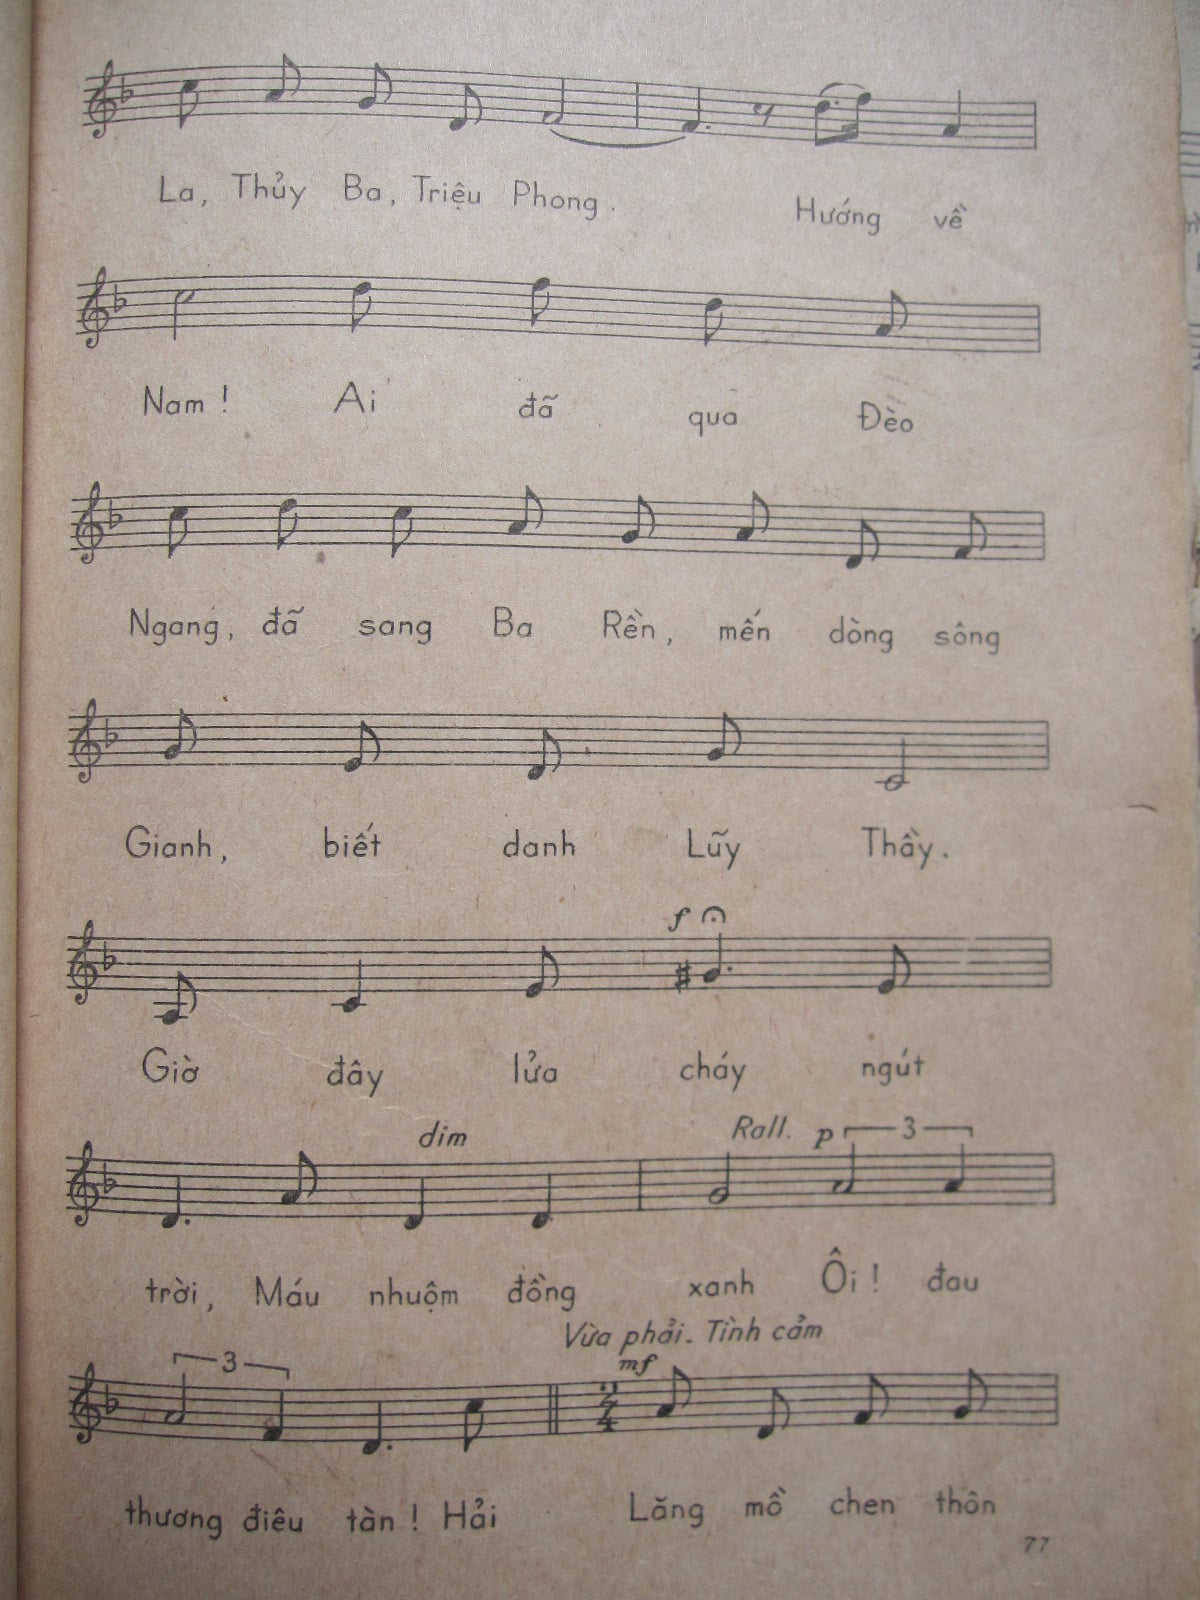 La, Thủy Ba, Triệu Phong. Hướng về
Nam! Ai đã qua Đèo
Ngang, đã sang Ba Rền, mến dòng sông
Gianh, biết danh Lũy Thầy.
f
Giờ đây lửa cháy ngút
dim Rall. p 3
trời, Máu nhuộm đồng xanh Ôi! đau
Vừa phải. Tình cảm
3 mf
2
4
thương điêu tàn! Hải Lăng mồ chen thôn
77